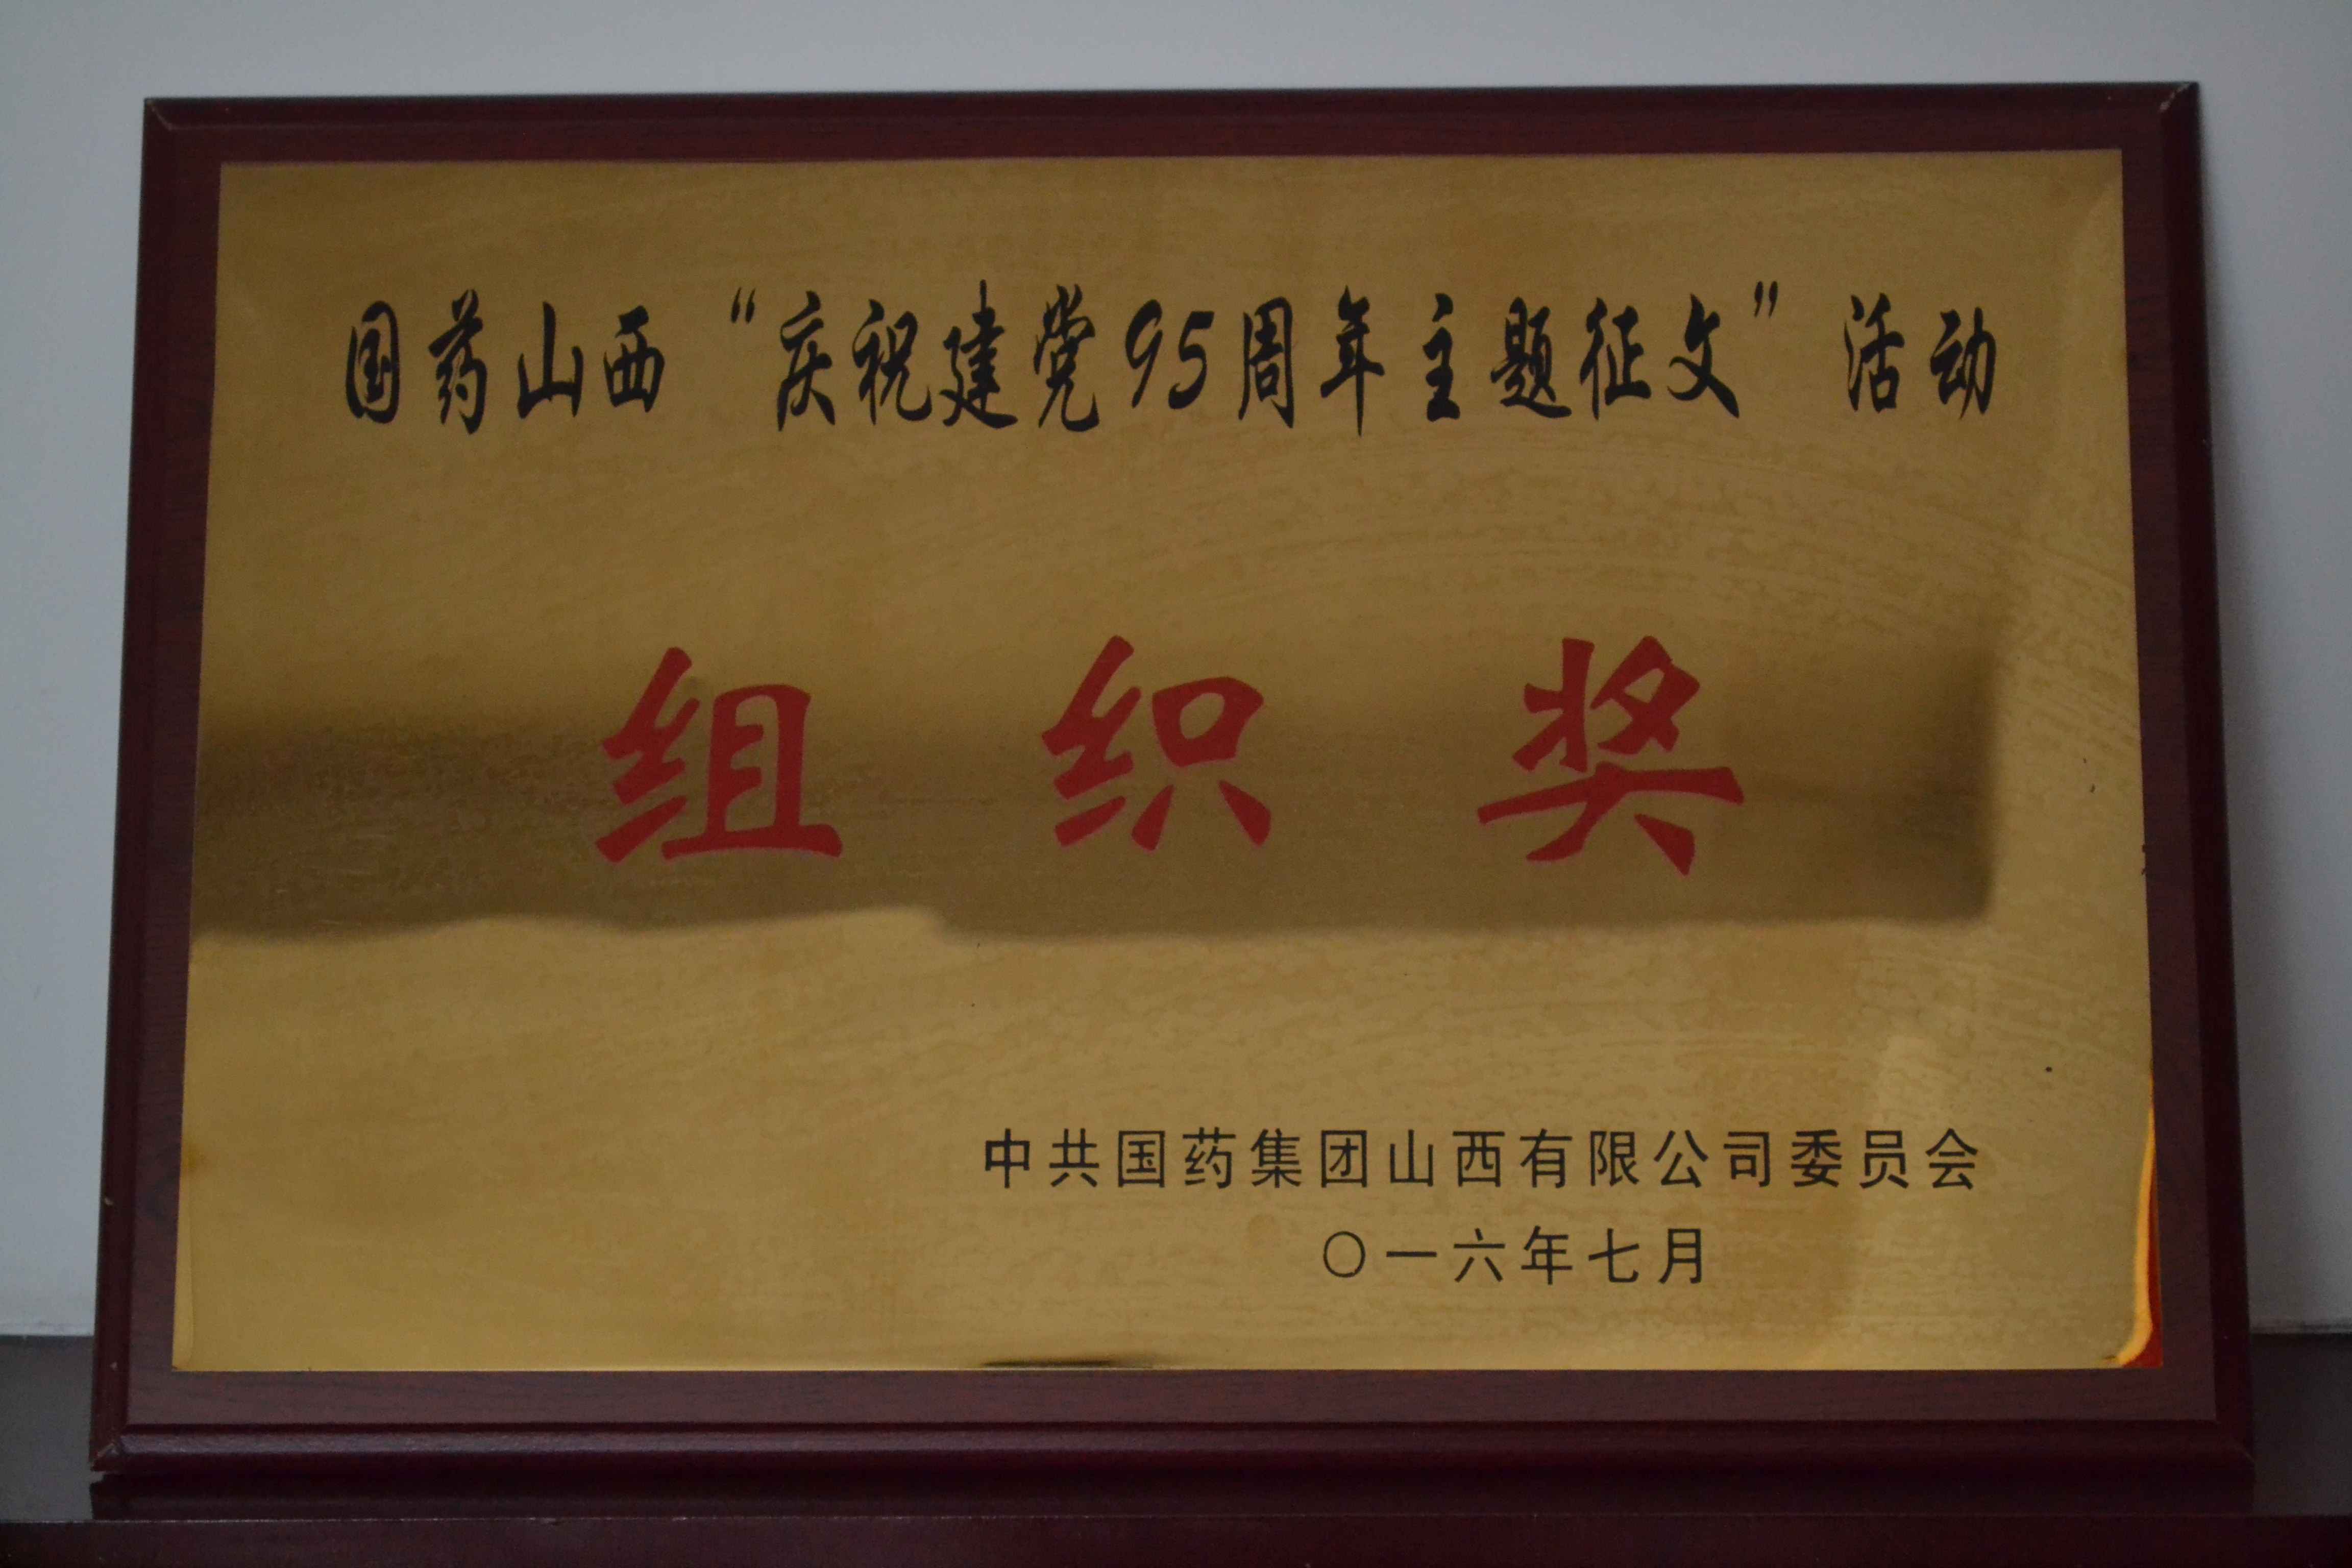 国药山西“庆祝建党95周年主题征文”活动
组织奖
中共国药集团山西有限公司委员会
〇一六年七月